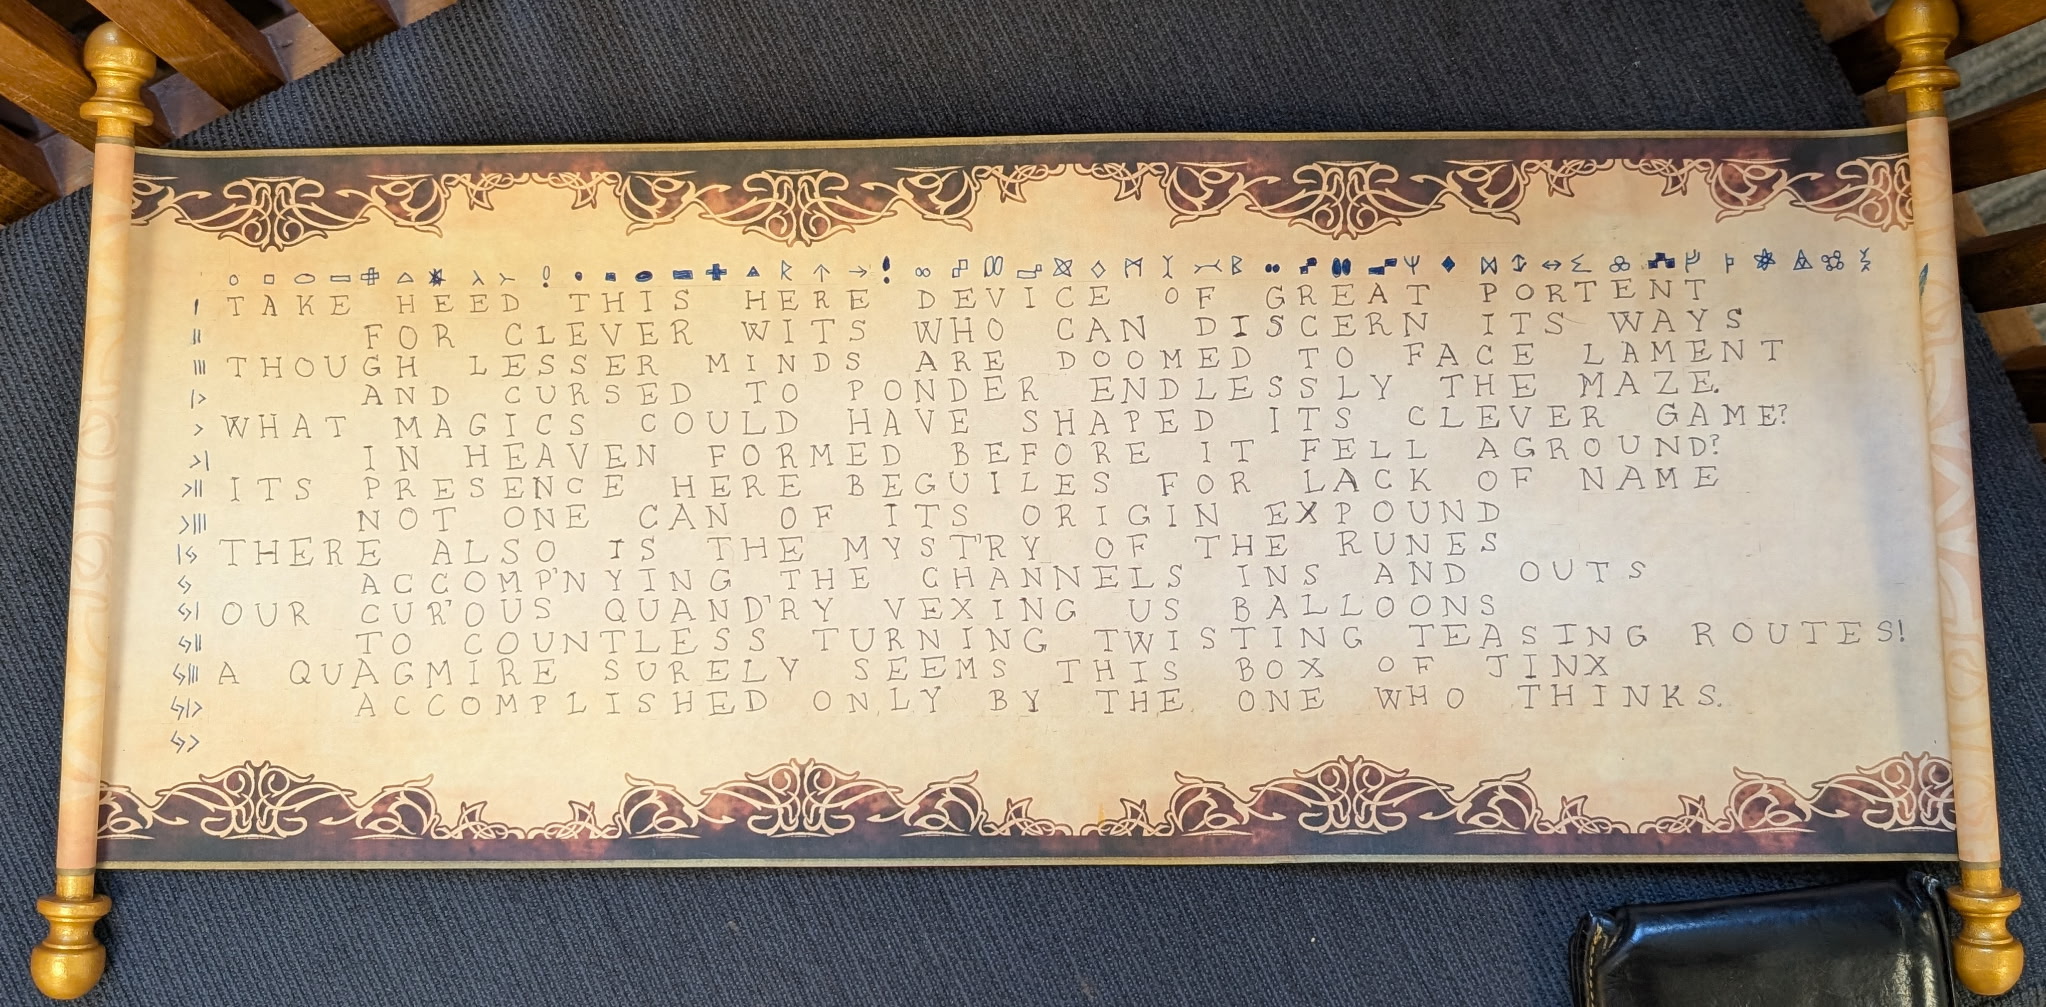 TAKE HEED THIS HERE DEVICE OF GREAT PORTENT
FOR CLEVER WITS WHO CAN DISCERN ITS WAYS
THOUGH LESSER MINDS ARE DOOMED TO FACE LAMENT
AND CURSED TO PONDER ENDLESSLY THE MAZE.
WHAT MAGICS COULD HAVE SHAPED ITS CLEVER GAME?
IN HEAVEN FORMED BEFORE IT FELL AGROUND?
ITS PRESENCE HERE BEGUILES FOR LACK OF NAME
NOT ONE CAN OF ITS ORIGIN EXPOUND
THERE ALSO IS THE MYST'RY OF THE RUNES
ACCOMP'NYING THE CHANNELS INS AND OUTS
OUR CUR'OUS QUAND'RY VEXING US BALLOONS
TO COUNTLESS TURNING TWISTING TEASING ROUTES!
A QUAGMIRE SURELY SEEMS THIS BOX OF JINX
ACCOMPLISHED ONLY BY THE ONE WHO THINKS.